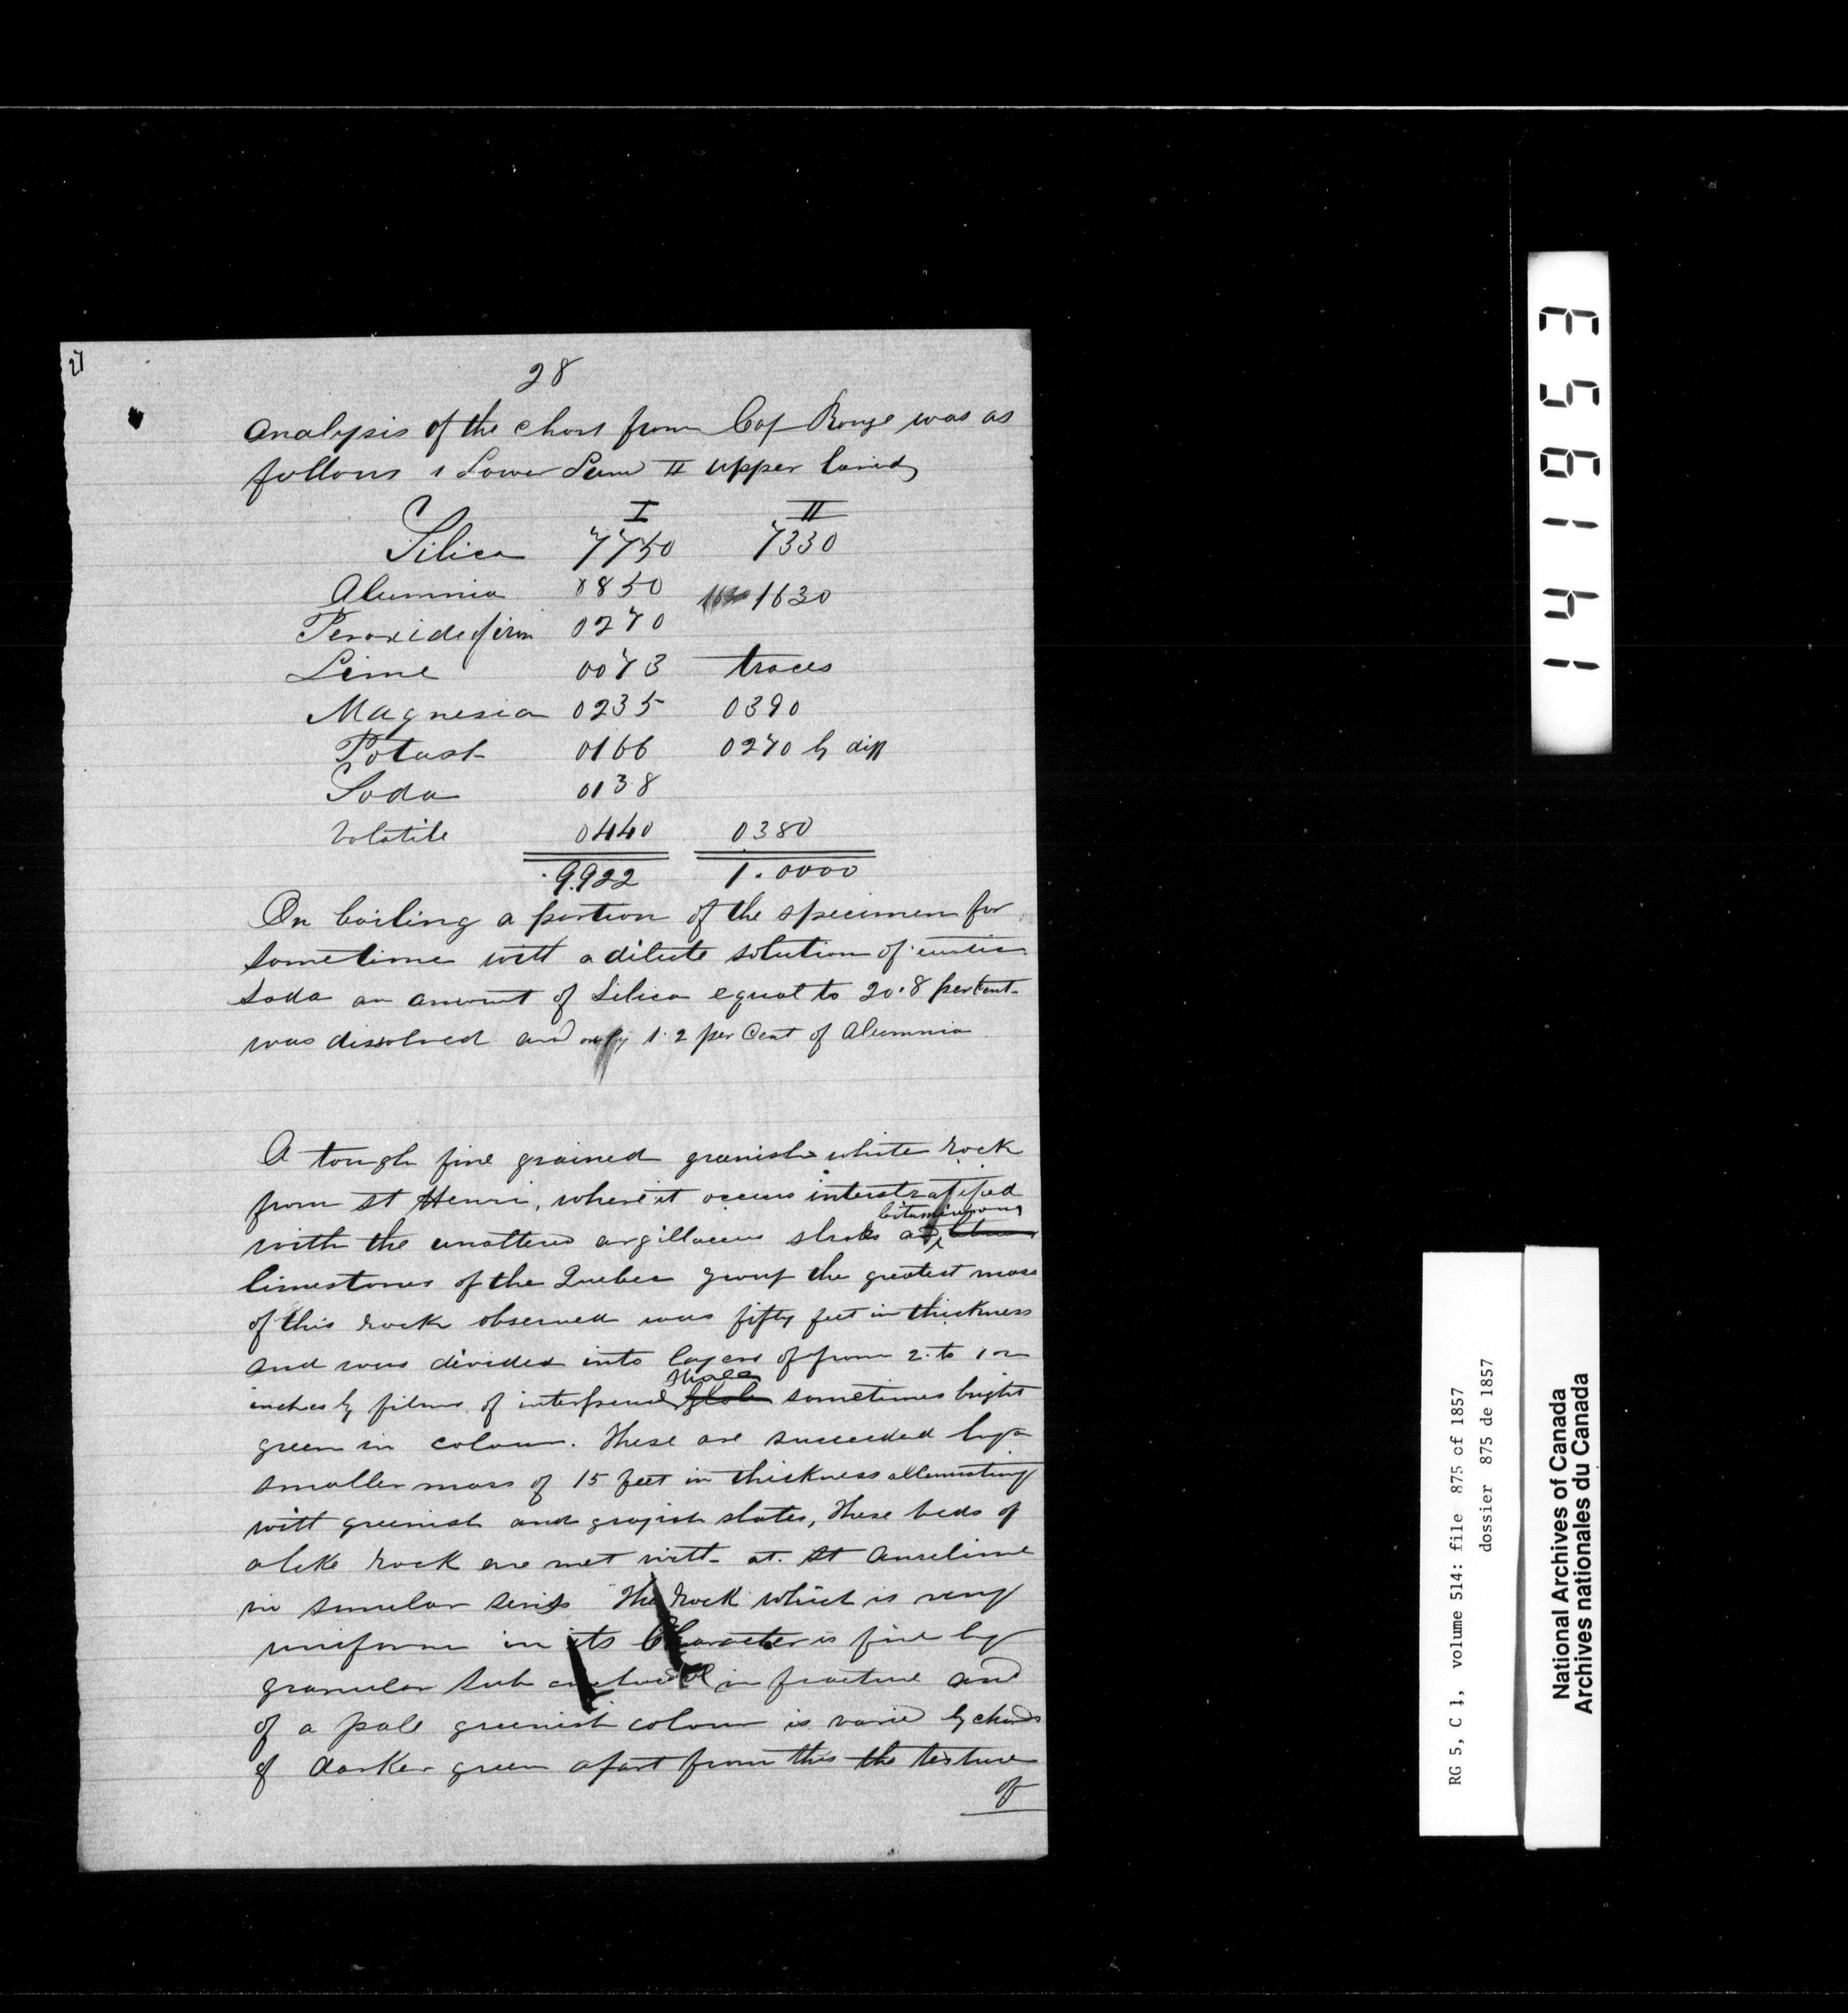 27
28
Analysis of the chert from Cap Rouge was as
follows 1 Lower Seam II upper band
I II
Silica 7750 7330
Alumina 0850 1630
Peroxide of iron 0270
Lime 0073 traces
Magnesia 0235 0390
Potash 0166 0270 by diff
Soda 0138
Volatile 0440 0380
.9922 1.0000
On boiling a portion of the specimen for
sometime with a dilute solution of caustic
soda an amount of Silica equal to 20.8 per Cent
was dissolved and only 1.2 per Cent of Alumina
A tough fine grained greenish white rock
from St Henri, where it occurs interstratified
bituminous
with the unaltered argillaceous shales and
limestones of the Quebec group the greatest mass
of this rock observed was fifty feet in thickness
and was divided into layers of from 2 to
shale
inches by films of interposed sometimes bright
green in colour. These are succeeded by a
smaller mass of 15 feet in thickness alternating
with greenish and grayish slates, these beds of
alike rock are met with at St Anselme
in similar series The rock which is very
uniform in its Character is fine ly
granular sub in fracture and
of a pale greenish colour is varied by
of darker green apart from this the texture
of
141953
RG 5, C 1, volume 514: file 875 of 1857
dossier 875 de 1857
National Archives of Canada
Archives nationales du Canada